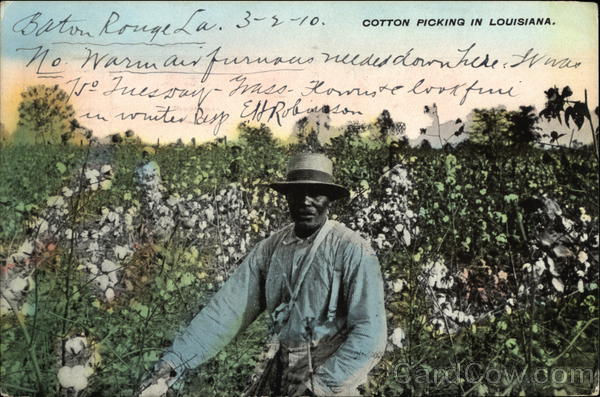 Baton Rouge La. 3-2-10.
COTTON PICKING IN LOUISIANA.
No Warm air furnous needed down here. It was
70° Tuesday - Grass - Flowers & look fine
in winter Resp E H Robinson
CardCow.com